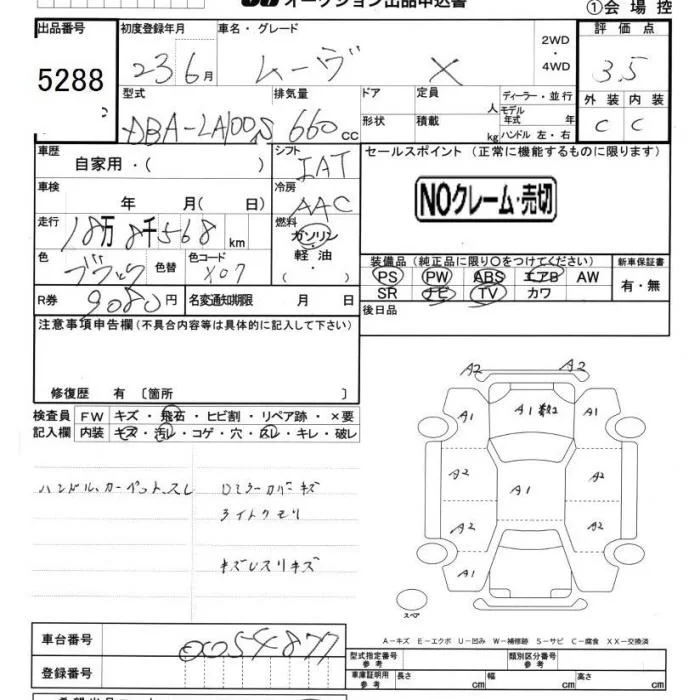 オークション出品申込書
①会場控
出品番号 5288
初度登録年月 23 6月
車名・グレード ムーヴ X
2WD・4WD
評価点 3.5
外装 C 内装 C
型式 DBA-LA100S
排気量 660cc
ドア 形状
定員 人
積載 kg
ディーラー・並行
モデル年式 年
ハンドル 左・右
車歴 自家用・( )
シフト IAT
冷房 AAC
燃料 ガソリン・軽油・( )
車検 年 月( 日)
走行 18万8千568km
色 ブラック 色替
色コード X07
R券 9080円
名変通知期限 月 日
セールスポイント(正常に機能するものに限ります)
NOクレーム・売切
装備品(純正品に限り○をつけてください)
PS PW ABS エアB AW
SR ナビ TV カワ
新車保証書 有・無
後日品
注意事項申告欄(不具合内容等は具体的に記入して下さい)
修復歴 有〔箇所 〕
検査員記入欄
FW キズ・飛石・ヒビ割・リペア跡・×要
内装 キズ・汚レ・コゲ・穴・スレ・キレ・破レ
ハンドル、カーペット、スレ
Dミラーカバーキズ
ライトクモリ
キズレスリキズ
A2 A2
A1 A1 A1
A2 A1 A2
A2 A2
A1
スペア
A-キズ E-エクボ U-凹み W-補修跡 S-サビ C-腐食 XX-交換済
車台番号 0054877
登録番号
型式指定番号 参考
類別区分番号 参考
車庫証明用 参考 長さ cm 幅 cm 高さ cm